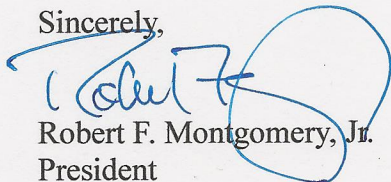 Sincerely,
Robert F. Montgomery, Jr.
President